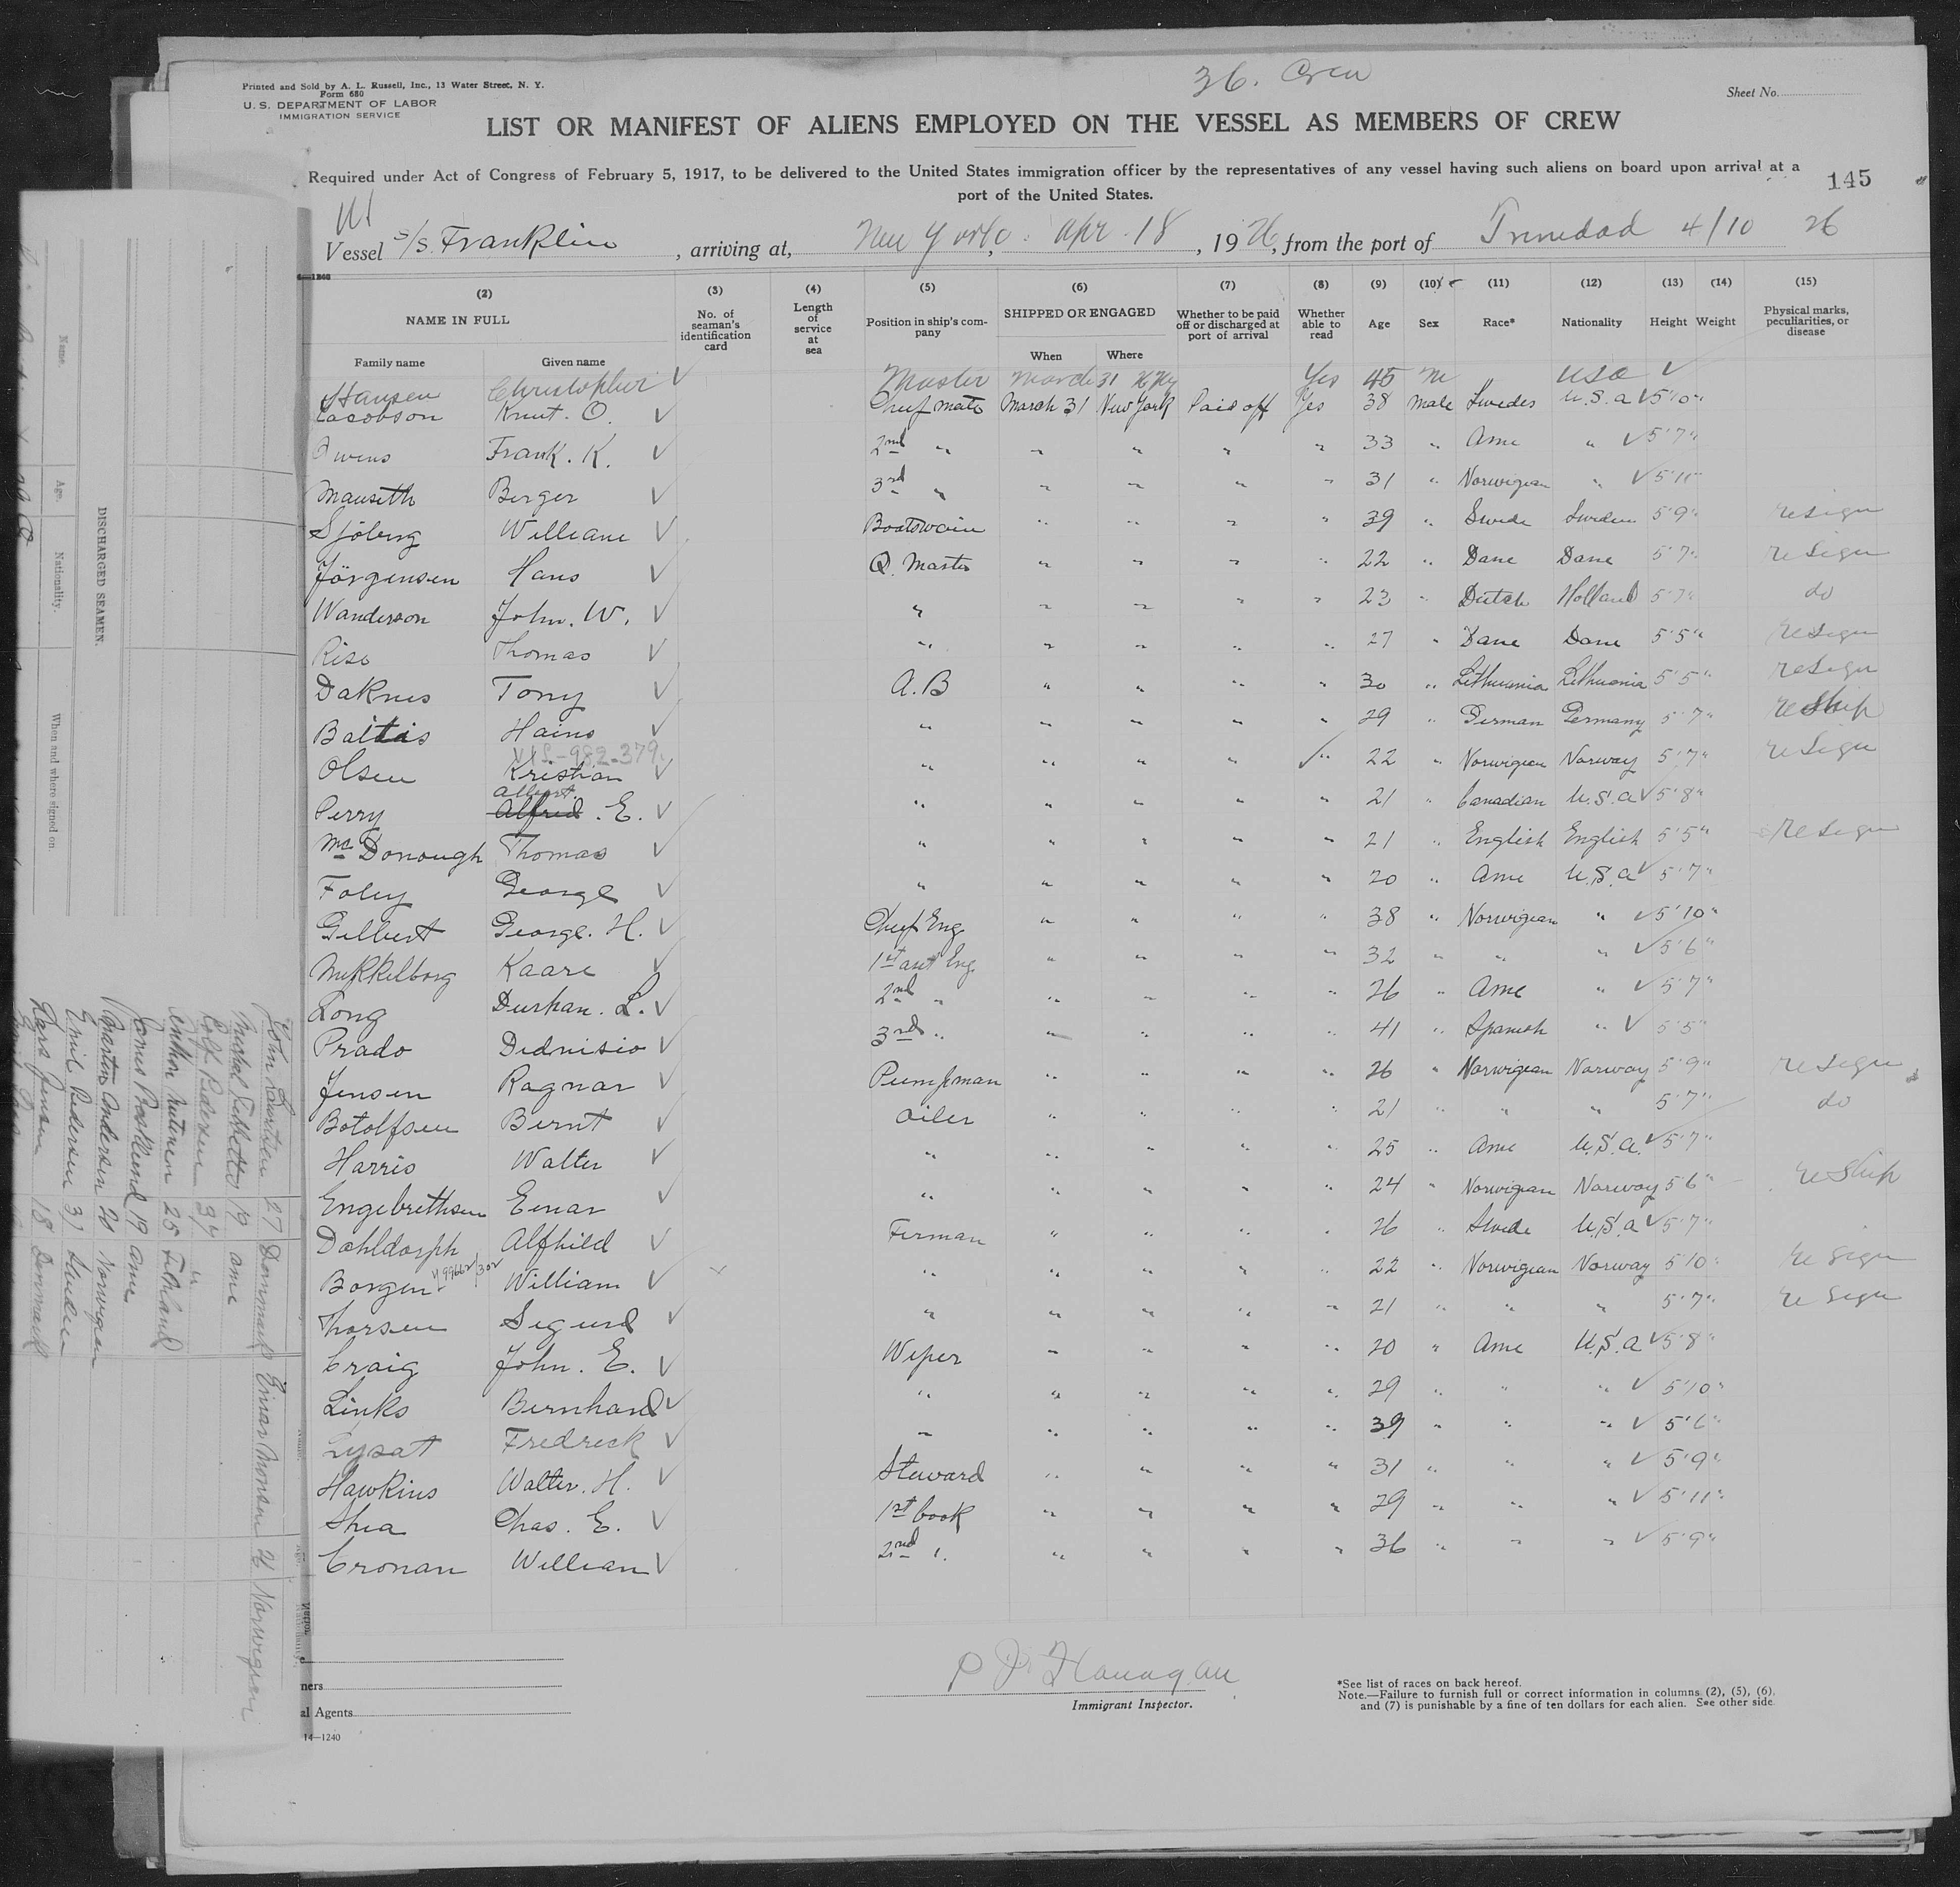 Printed and Sold by A. L. Russell, Inc., 13 Water Street, N. Y.
Form 680
U. S. DEPARTMENT OF LABOR
IMMIGRATION SERVICE
36. Crew
Sheet No.
LIST OR MANIFEST OF ALIENS EMPLOYED ON THE VESSEL AS MEMBERS OF CREW
Required under Act of Congress of February 5, 1917, to be delivered to the United States immigration officer by the representatives of any vessel having such aliens on board upon arrival at a
port of the United States.
145
Vessel S/S. Franklin, arriving at, New York. Apr. 18, 1926, from the port of Trinidad 4/10 26
(2) (3) (4) (5) (6) (7) (8) (9) (10) (11) (12) (13) (14) (15)
NAME IN FULL No. of seaman's identification card Length of service at sea Position in ship's company SHIPPED OR ENGAGED Whether to be paid off or discharged at port of arrival Whether able to read Age Sex Race* Nationality Height Weight Physical marks, peculiarities, or disease
Family name Given name When Where
Hansen Christopher ✓ Master March 31 26 Ny Yes 45 m USA ✓
Jacobson Knut. O. ✓ Chief mate March 31 New York Paid off Yes 38 Male Swedes U.S.A ✓ 5'10"
Owens Frank. K. ✓ 2nd " " " " " 33 " Ame " ✓ 5'7"
Mauseth Berger ✓ 3rd " " " " " 31 " Norwigean " ✓ 5'11"
Sjöberg William ✓ Boatswain " " " " 39 " Swede Sweden 5'9" resign
Jörgensen Hans ✓ Q. Master " " " " 22 " Dane Dane 5'7" resign
Wanderson John. W. ✓ " " " " " 23 " Dutch Holland 5'7" do
Rise Thomas ✓ " " " " " 27 " Dane Dane 5'5" resign
Daknis Tony ✓ A.B " " " " 30 " Lithuania Lithuania 5'5" resign
Baltais Hains ✓ " " " " " 29 " German Germany 5'7" reship
VL-982-379.
Olsen Kristian ✓ " " " " " 22 " Norwigean Norway 5'7" resign
Albert.
Perry Alfred. E. ✓ " " " " " 21 " Canadian U.S.A ✓ 5'8"
McDonough Thomas ✓ " " " " " 21 " English English 5'5" resign
Foley George ✓ " " " " " 20 " Ame U.S.A ✓ 5'7"
Gilbert George. H. ✓ Chief Eng " " " " 38 " Norwigean " ✓ 5'10"
Mikkelborg Kaare ✓ 1st ast Eng " " " " 32 " " " ✓ 5'6"
Long Durhan. L. ✓ 2nd " " " " " 26 " Ame " ✓ 5'7"
Prado Didnisio ✓ 3rd " " " " " 41 " Spanish " ✓ 5'5"
Jensen Ragnar ✓ Pumpman " " " " 26 " Norwigean Norway 5'9" resign
Botolfsen Bernt ✓ Oiler " " " " 21 " " " 5'7" do
Harris Walter ✓ " " " " " 25 " Ame U.S.A. ✓ 5'7"
Engebrethsen Einar ✓ " " " " " 24 " Norwigean Norway 5'6" reship
Dahldorph Alfhild ✓ Firman " " " " 26 " Swede U.S.A ✓ 5'7"
Borgen William ✓ " " " " " 22 " Norwigean Norway 5'10" resign
Thorsen Sigurd ✓ " " " " " 21 " " " 5'7" resign
Craig John. E. ✓ Wiper " " " " 20 " Ame U.S.A ✓ 5'8"
Links Bernhard ✓ " " " " " 29 " " " ✓ 5'10"
Lysat Fredreck ✓ " " " " " 39 " " " ✓ 5'6"
Hawkins Walter. H. ✓ Steward " " " " 31 " " " ✓ 5'9"
Shea Chas. E. ✓ 1st Cook " " " " 29 " " " ✓ 5'11"
Cronan William ✓ 2nd " " " " " 36 " " " ✓ 5'9"
P J Flanagan
Immigrant Inspector.
*See list of races on back hereof.
Note.—Failure to furnish full or correct information in columns (2), (5), (6),
and (7) is punishable by a fine of ten dollars for each alien. See other side.
ners
al Agents
14—1240
DISCHARGED SEAMEN.
Name. Age. Nationality. When and where signed on.
John Lauritsen 27 Danmark
19 ame
Rolf Pedersen 34 "
25 Finland
19 ame
Martin Andersen 20 Norwigean
Emil Pedersen 31 Sweden
Lars Jensen 18 Denmark
Einar Monsen 21 Norwigean